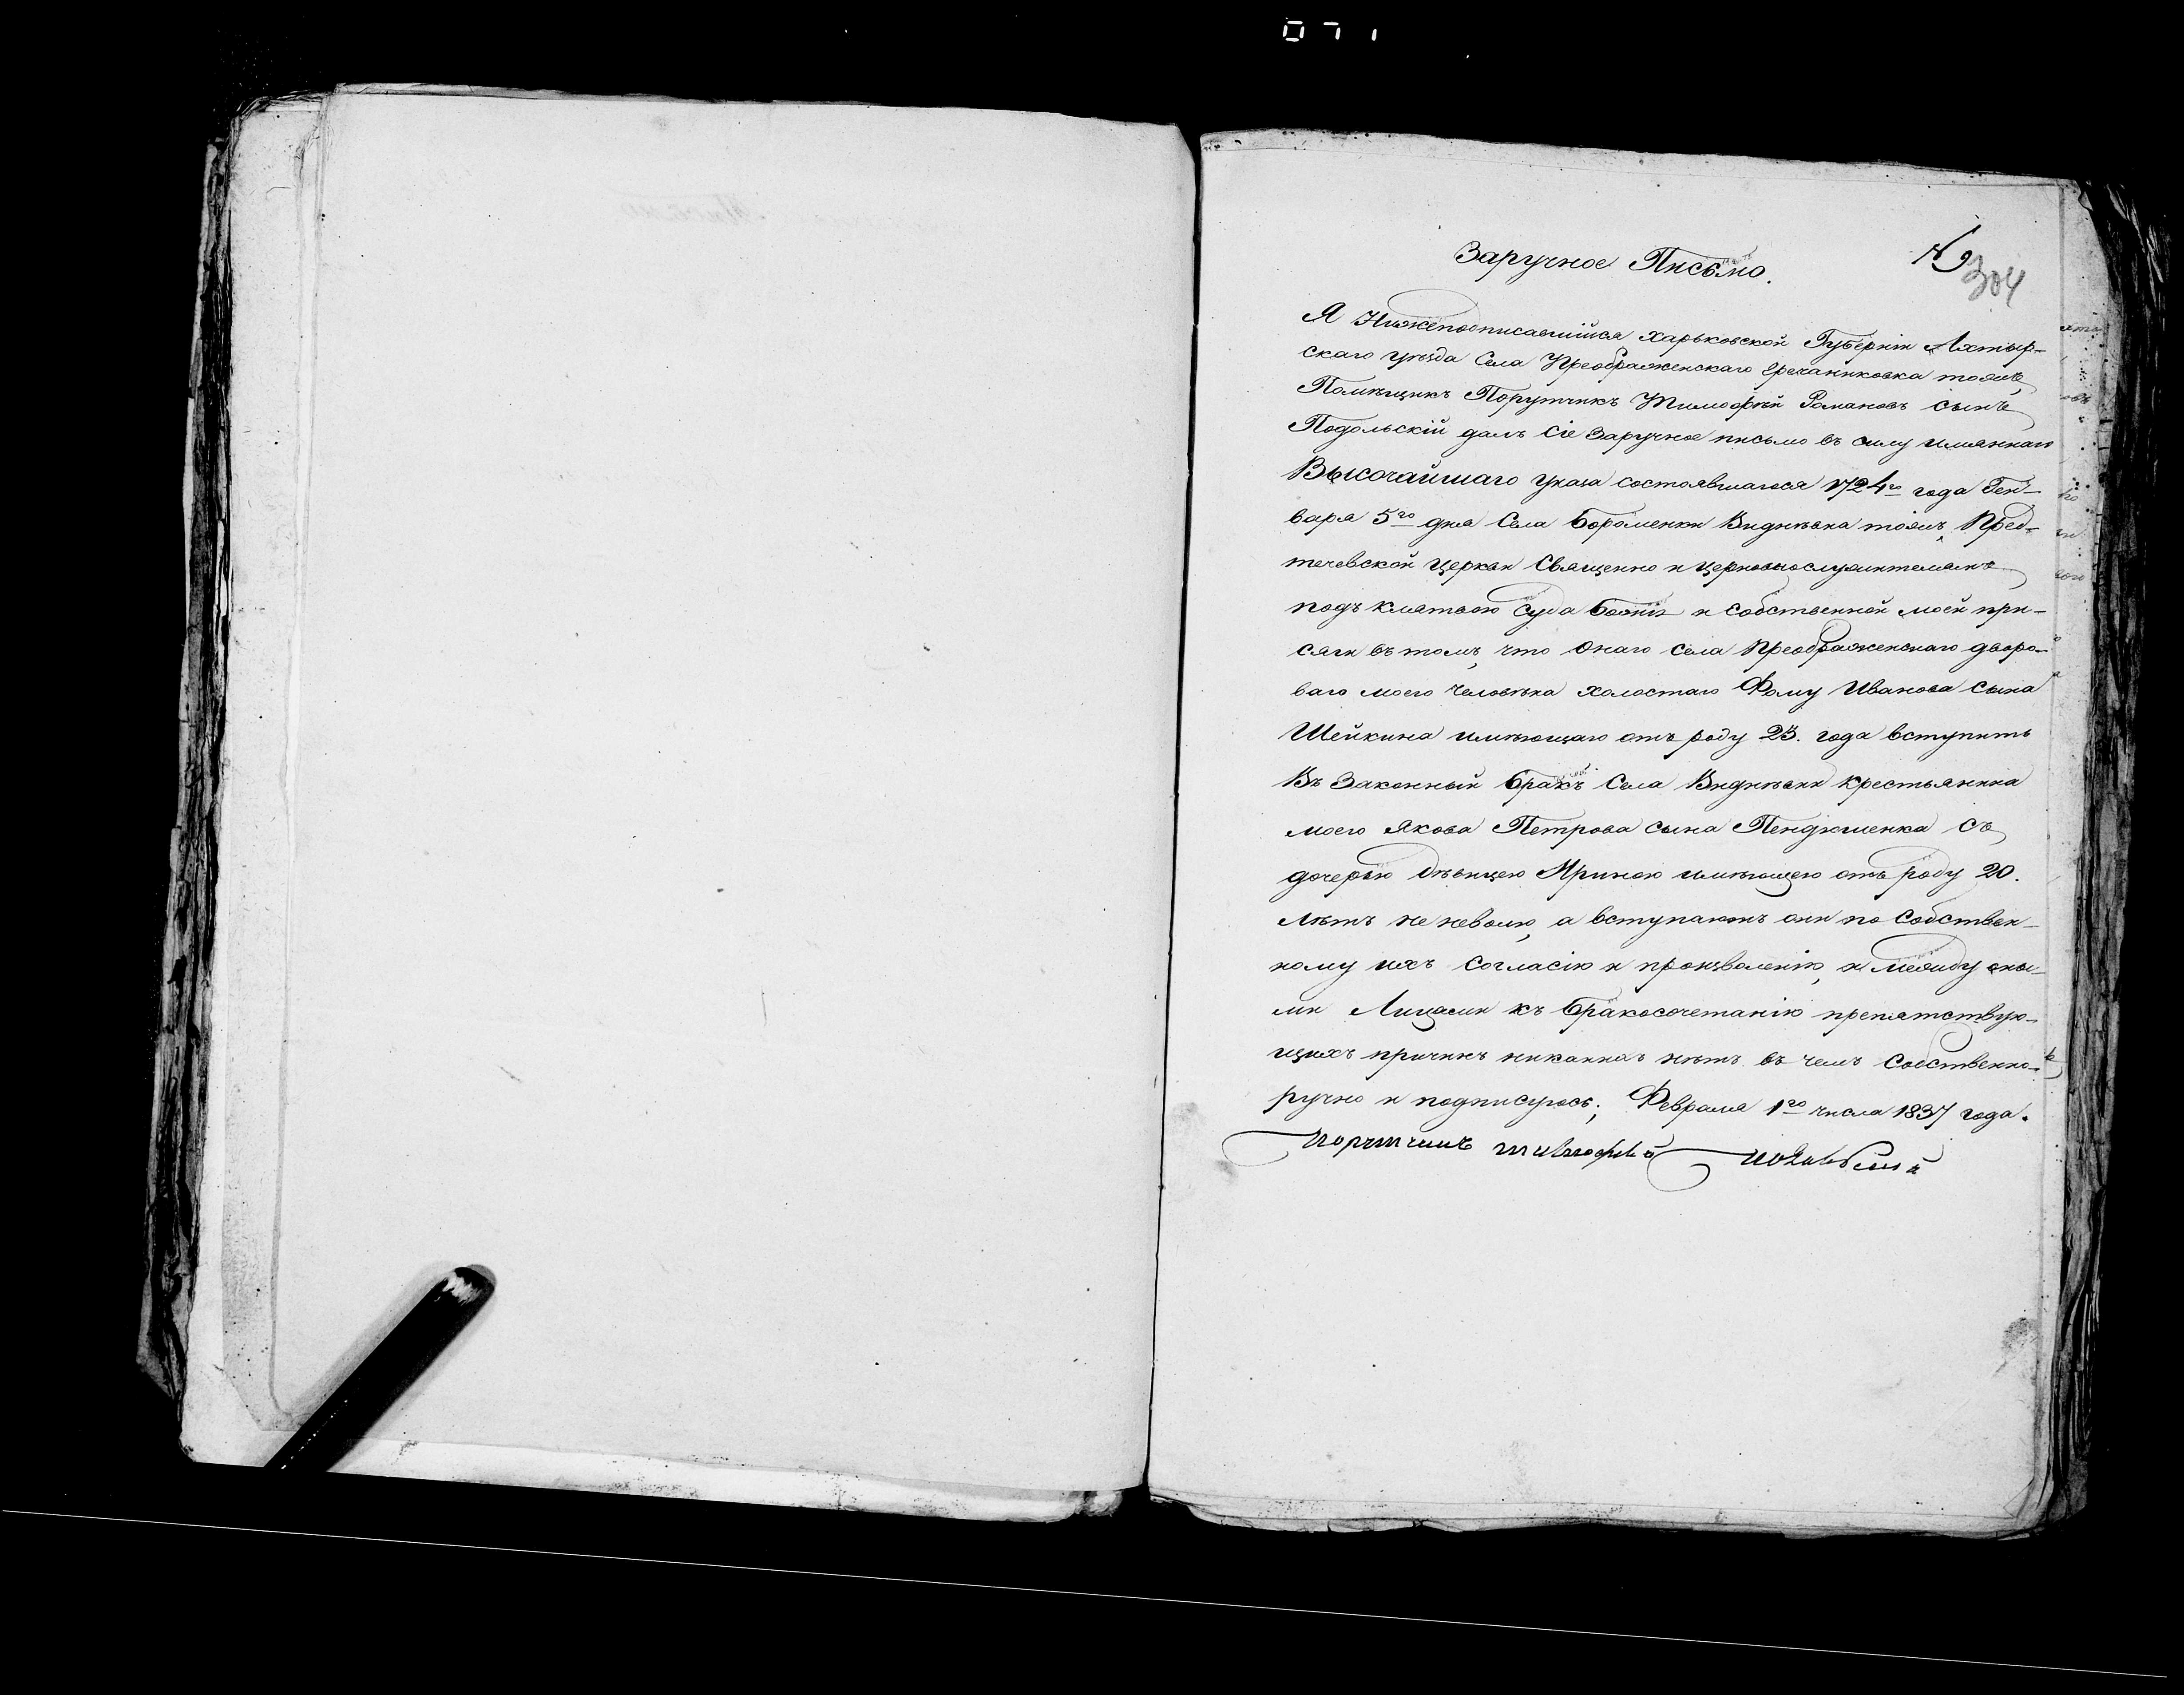 071
Заручное Письмо.
№ 9
304
Я Нижеподписавшійся Харьковской Губерніи Ахтыр-
скаго уѣзда Села Преображенскаго Гречаниковка тожъ,
Помѣщикъ Порутчикъ Тимофѣй Романовъ сынъ
Подольскій далъ сіе заручное письмо въ силу имяннаго
Высочайшаго указа состоявшагося 1724го года Ген-
варя 5го дня Села Бороменки Виднѣвка тожъ, Пред-
течевской церкви Священно и церковнослужителямъ
подъ клятвою Суда Божія и собственной моей при-
сяги въ томъ, что онаго села Преображенскаго дворо-
ваго моего человѣка холостаго Фому Иванова сына
Шейкина имѣющаго отъ роду 23. года вступить
Въ Законный бракъ Села Виднѣвки крестьянина
моего Якова Петрова сына Пендюшенка съ
дочерью дѣвицею Ириною имѣющею отъ роду 20.
лѣтъ не неволю, а вступаютъ они по собствен-
ному ихъ согласію и произволенію, и между оны-
ми Лицами къ бракосочетанію препятствую-
щихъ причинъ никакихъ нѣтъ въ чемъ собственно-
ручно и подписуюсь; Февраля 1го числа 1837 года.
порутчикъ тимофей подольский